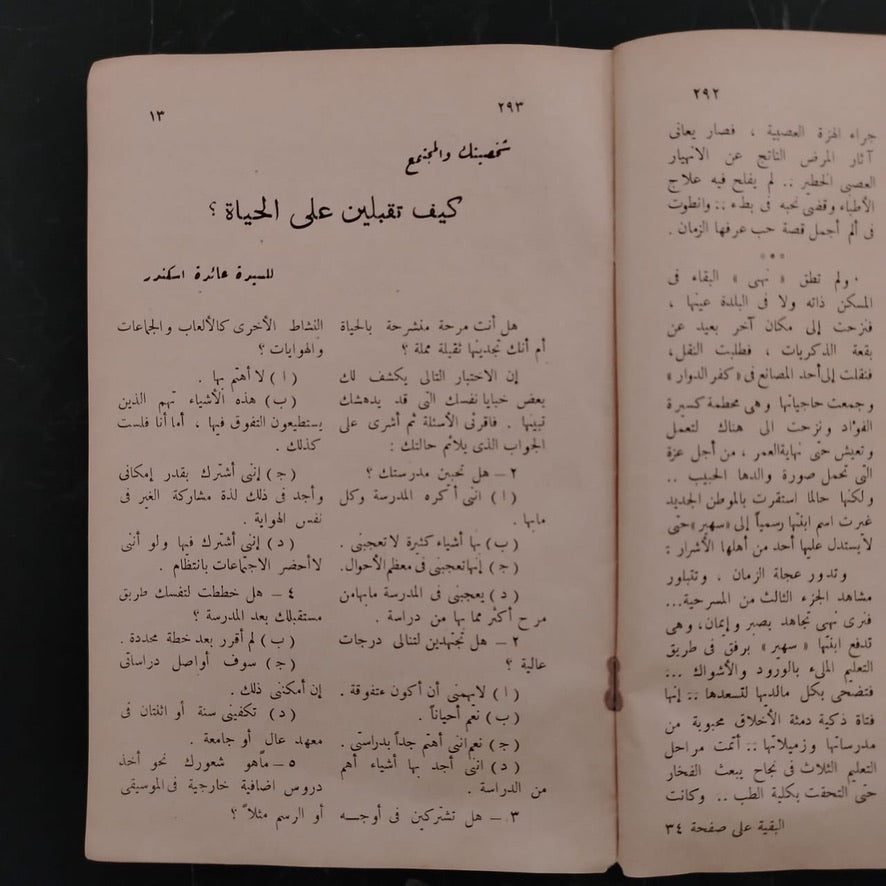 ٢٩٢
جراء الهزة العصبية ، فصار يعانى
آثار المرض الناتج عن الانهيار
العصبى الخطير .. لم يفلح فيه علاج
الأطباء وقضى نحبه فى بطء .. وانطوت
فى ألم أجمل قصة حب عرفها الزمان .
***
ولم تطق « نهى » البقاء فى
المسكن ذاته ولا فى البلدة عينها ،
فنزحت إلى مكان آخر بعيد عن
بقعة الذكريات ، فطلبت النقل،
فنقلت إلى أحد المصانع فى «كفر الدوار »
وجمعت حاجياتها وهى محطمة كسيرة
الفؤاد ونزحت الى هناك لتعمل
وتعيش حتى نهاية العمر ، من أجل عزة
التى تحمل صورة والدها الحبيب ..
ولكنها حالما استقرت بالموطن الجديد
غيرت اسم ابنتها رسمياً إلى «سهير» حتى
لا يستدل عليها أحد من أهلها الأشرار :
وتدور عجلة الزمان ، وتتبلور
مشاهد الجزء الثالث من المسرحية...
فنرى نهى تجاهد بصبر وإيمان، وهى
تدفع ابنتها « سهير » برفق فى طريق
التعليم الملىء بالورود والأشواك ...
فتضحى بكل مالديها لتسعدها .. إنها
فتاة ذكية دمثة الأخلاق محبوبة من
مدرساتها وزميلاتها .. أتمت مراحل
التعليم الثلاث فى نجاح يبعث الفخار
حتى التحقت بكلية الطب .. وكانت
البقية على صفحة ٣٤
٢٩٣
١٣
شخصيتك والمجتمع
كيف تقبلين على الحياة ؟
للسيدة عائدة اسكندر
هل أنت مرحة منشرحة بالحياة
أم أنك تجدينها ثقيلة مملة ؟
إن الاختبار التالى يكشف لك
بعض خبايا نفسك التى قد يدهشك
تبينها . فاقرئى الأسئلة ثم أشرى على
الجواب الذى يلائم حالتك :
٢ – هل تحبين مدرستك ؟
( ا ) اننى أكره المدرسة وكل
مابها .
( ب ) بها أشياء كثيرة لاتعجبنى .
( ج ) إنها تعجبنى فى معظم الأحوال.
( د ) يعجبنى فى المدرسة مابها من
مرح أكثر مما بها من دراسة .
٢ – هل تجتهدين لتنالى درجات
عالية ؟
( ا ) لايهمنى أن أكون متفوقة .
( ب ) نعم أحياناً .
( ج ) نعم اننى أهتم جداً بدراستى .
( د ) اننى أجد بها أشياء أهم
من الدراسة .
٣ – هل تشتركين فى أوجه
النشاط الأخرى كالألعاب والجماعات
والهوايات ؟
( ا ) لا أهتم بها .
( ب ) هذه الأشياء تهم الذين
يستطيعون التفوق فيها ، أما أنا فلست
كذلك .
( ج ) إننى أشترك بقدر إمكانى
وأجد فى ذلك لذة مشاركة الغير فى
نفس الهواية .
( د ) إننى أشترك فيها ولو أننى
لا أحضر الاجتماعات بانتظام .
٤ – هل خططت لنفسك طريق
مستقبلك بعد المدرسة ؟
( ب ) لم أقرر بعد خطة محددة .
( ج ) سوف أواصل دراساتى
إن أمكننى ذلك .
( د ) تكفينى سنة أو اثنتان فى
معهد عال أو جامعة .
٥ – ماهو شعورك نحو أخذ
دروس اضافية خارجية فى الموسيقى
أو الرسم مثلاً ؟